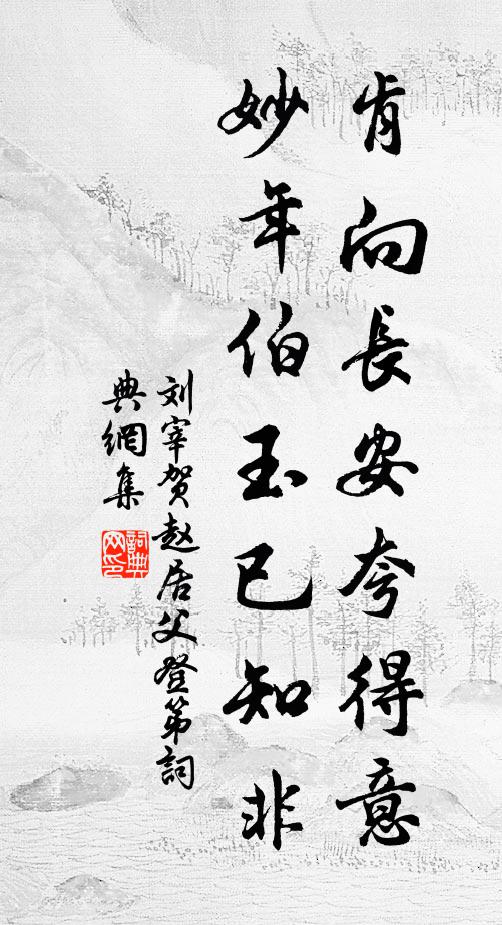 肯向長安夸得意
妙年伯玉已知非
刘宰贺赵居父登第詞
典網集
詞典
网印